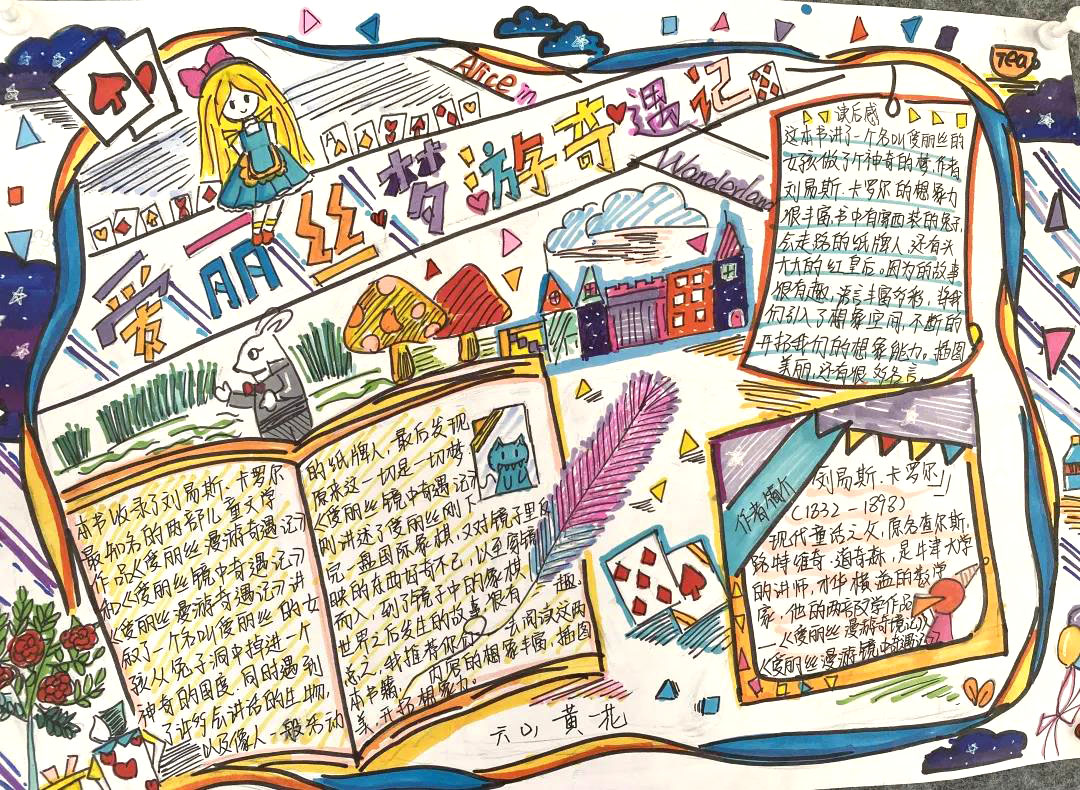 Alice in
Tea
爱丽丝梦游奇遇记
Wonderland
读后感
这本书讲了一个名叫爱丽丝的
女孩做了个神奇的梦作者
刘易斯.卡罗尔的想象力
很丰富书中有穿西装的兔子,
会走路的纸牌人,还有头
大大的红皇后。因为的故事
很有趣,语言丰富多彩,将我
们引入了想象空间,不断的
开拓我们的想象能力。插图
美丽,还有很多名言。
本书收录了刘易斯.卡罗尔
最知名的两部儿童文学
作品《爱丽丝漫游奇遇记》
和《爱丽丝镜中奇遇记》
《爱丽丝漫游奇遇记》讲
叙了一个名叫爱丽丝的女
孩从兔子洞中掉进一个
神奇的国度,同时遇到
了许多会讲话的生物,
以及像人一般活动
的纸牌人,最后发现
原来这一切是一切梦
《爱丽丝镜中奇遇记》
则讲述了爱丽丝刚下
完一盘国际象棋,又对镜子里反
映的东西好奇不已,以至穿镜
而入,到了镜子中的象棋
世界之后发生的故事很有趣.
总之,我推荐你们去阅读这两
本书籍,内容的想象丰富,插图
美,开拓想象力。
作者简介
刘易斯.卡罗尔
(1832-1898)
现代童话之父,原名查尔斯.
路特维奇.道奇森,是牛津大学
的讲师,才华横溢的数学
家,他的两部文学作品
《爱丽丝漫游奇境记》
《爱丽丝漫游镜中奇遇记》
六(1) 黄一花